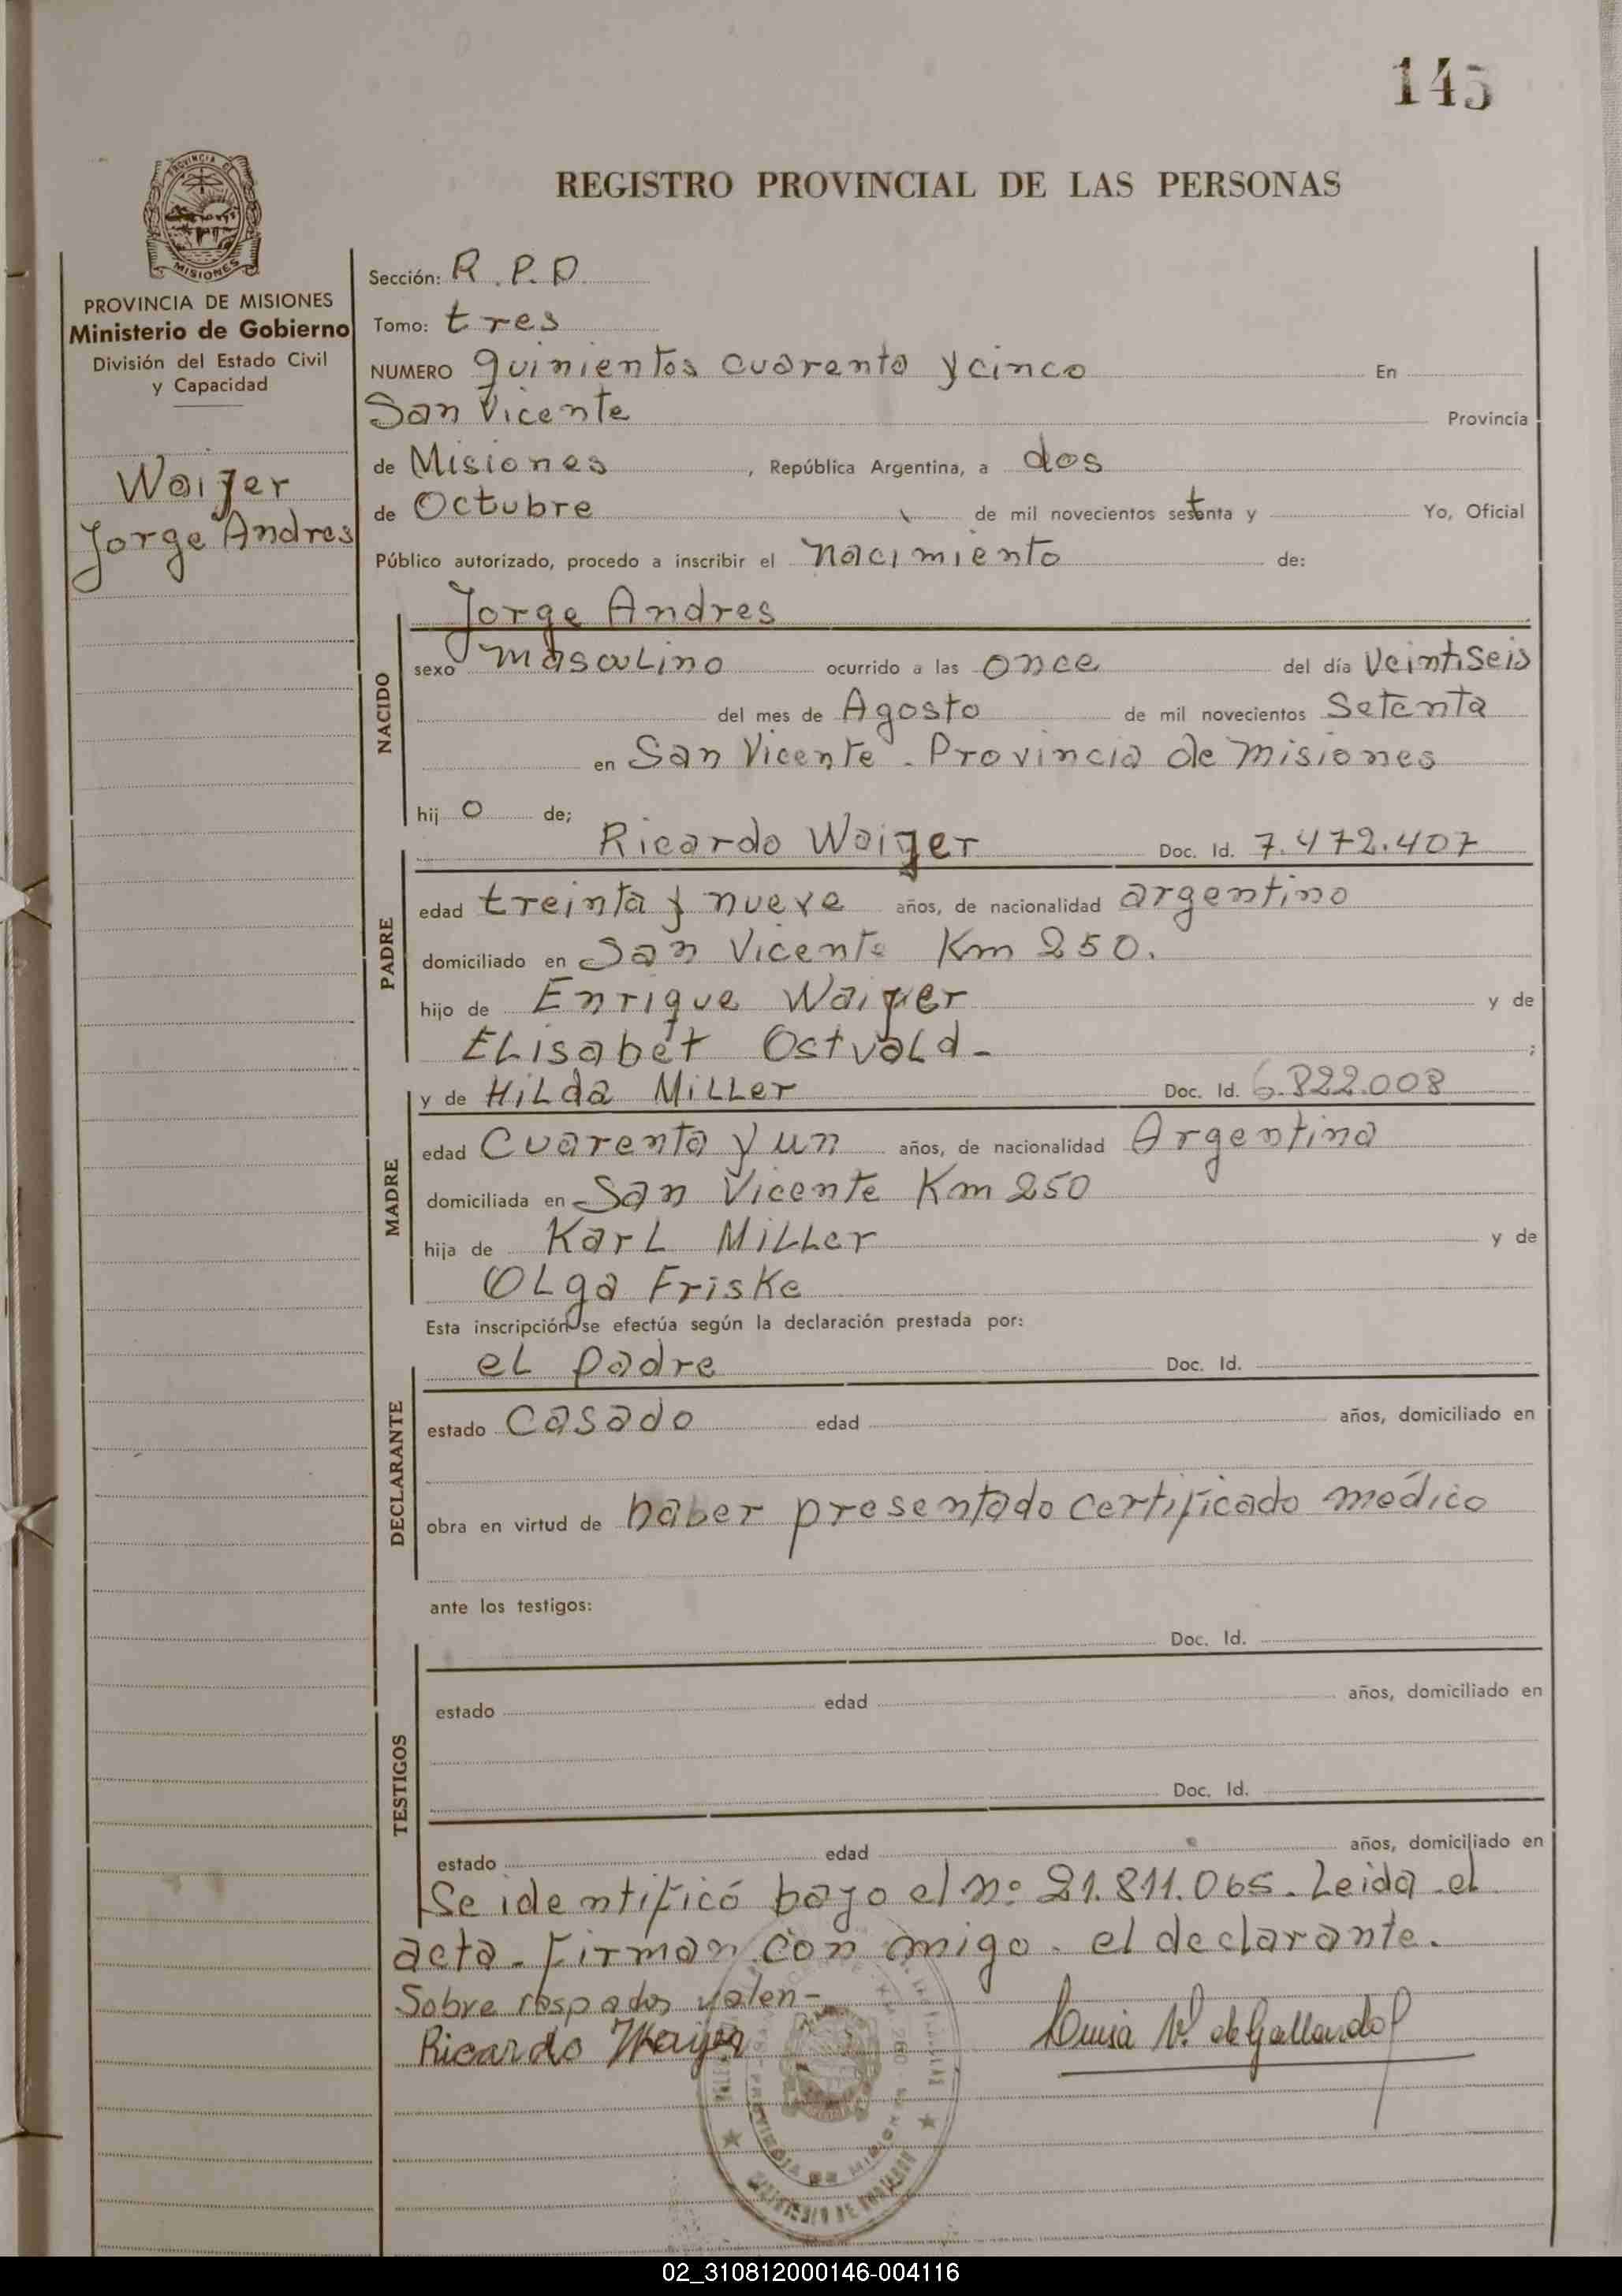 145
REGISTRO PROVINCIAL DE LAS PERSONAS
PROVINCIA DE MISIONES
Ministerio de Gobierno
División del Estado Civil
y Capacidad
Waiger
Jorge Andres
Sección: R.P.D.
Tomo: tres
NUMERO quinientos cuarenta y cinco En
San Vicente Provincia
de Misiones, República Argentina, a dos
de Octubre de mil novecientos setenta y Yo, Oficial
Público autorizado, procedo a inscribir el nacimiento de:
NACIDO
Jorge Andres
sexo masculino ocurrido a las once del día veintiseis
del mes de Agosto de mil novecientos Setenta
en San Vicente. Provincia de Misiones
hijo de;
PADRE
Ricardo Waiger Doc. Id. 7.472.407
edad treinta y nueve años, de nacionalidad argentino
domiciliado en San Vicente Km 250.
hijo de Enrique Waiger y de
Elisabet Ostvald - ;
MADRE
y de Hilda Miller Doc. Id. 6.822.008
edad Cuarenta y un años, de nacionalidad Argentina
domiciliada en San Vicente Km 250
hija de Karl Miller y de
Olga Friske
Esta inscripción se efectúa según la declaración prestada por:
DECLARANTE
el padre Doc. Id.
estado Casado edad años, domiciliado en
obra en virtud de haber presentado certificado médico
ante los testigos:
TESTIGOS
Doc. Id.
estado edad años, domiciliado en
Doc. Id.
estado edad años, domiciliado en
Se identificó bajo el nº 21.811.065. Leida el
acta. Firman con migo. el declarante.
Sobre raspados valen-
Ricardo Waiger
Luisa V. de Gallardo
02_310812000146-004116